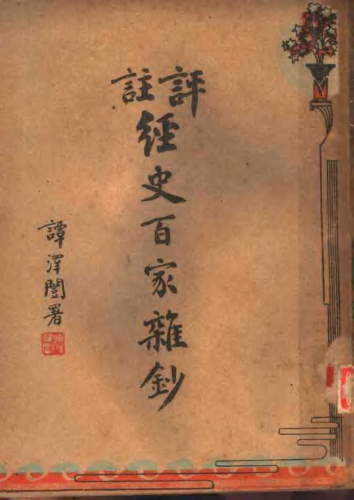 評註
經史百家雜鈔
譚澤闓署